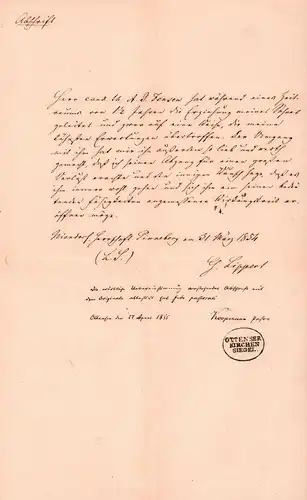 Abschrift
Herr cand. th. A. D. Jensen hat während eines Zeit-
raums von 1½ Jahren die Erziehung meines Sohnes
geleitet und zwar auf eine Weise, die meine
kühnsten Erwartungen übertroffen. Der Umgang
mit ihm hat mir ihn außerdem so lieb und werth
gemacht, daß ich seinen Abgang für einen großen
Verlust erachte und den innigen Wunsch hege, daß es
ihm immer wohl gehen und sich ihm ein seinen bedeu-
tenden Fähigkeiten angemessener Wirkungskreis er-
öffnen möge.
Niendorf, Herrschaft Pinneberg den 31 März 1854
(L.S.) G. Lippert
Die wörtliche Uebereinstimmung vorstehender Abschrift mit
dem Originale attestirt sub fide pastorali
Ottensen den 17 April 1855
OTTENSER
KIRCHEN
SIEGEL